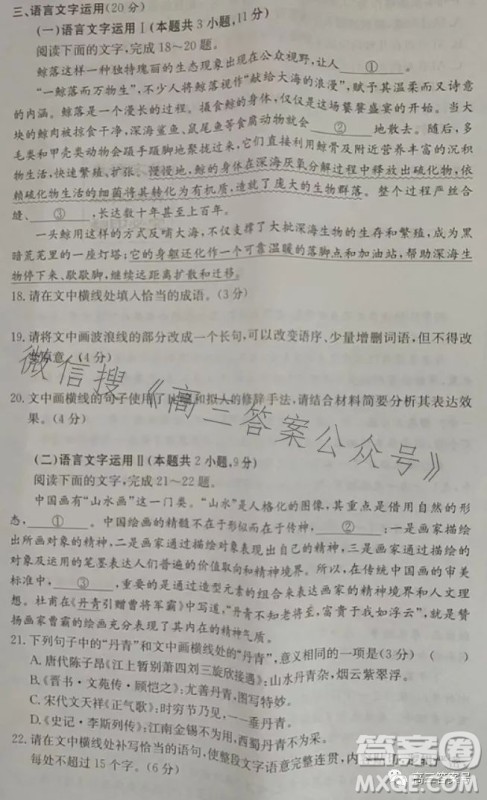 三、语言文字运用(20分)
(一)语言文字运用Ⅰ(本题共3小题,11分)
阅读下面的文字,完成18~20题。
鲸落这样一种独特瑰丽的生态现象出现在公众视野,让人 ① 。
“一鲸落而万物生”,不少人将鲸落视作“献给大海的浪漫”,赋予其温柔而又诗意
的内涵。鲸落是一个漫长的过程。摄食鲸的身体,仅仅是这场饕餮盛宴的开始。当
大块的鲸肉被掠食干净,深海鲨鱼、鼠尾鱼等食腐动物就会 ② 地散去。随后,多
毛类和甲壳类动物会蹑手蹑脚地聚拢过来,它们在鲸骨及附近营养丰富的沉积
物中生活,快速繁殖、扩张。慢慢地,鲸的身体在深海厌氧分解过程中释放出硫化物,依
赖硫化物生活的细菌将其转化为有机质,造就了庞大的生物群落。整个过程严丝合
缝, ③ ,长达数十年甚至上百年。
一头鲸用这样的方式反哺大海,不仅支撑了大批深海生物的生存和繁殖,成为黑
暗荒芜里的一座灯塔;它的身躯还化作一个可靠温暖的落脚点和加油站,帮助深海生
物停下来、歇歇脚,继续远距离扩散和迁移。
18.请在文中横线处填入恰当的成语。(3分)
19.请将文中画波浪线的部分改成一个长句,可以改变语序、少量增删词语,但不得改
变原意。(4分)
20.文中画横线的句子使用了比喻和拟人的修辞手法,请结合材料简要分析其表达效
果。(4分)
(二)语言文字运用Ⅱ(本题共2小题,9分)
阅读下面的文字,完成21~22题。
中国画有“山水画”这一门类。“山水”是人格化的图像,其重点不是自然的形
态, ① 。中国绘画的精髓不在于形似而在于传神, ② :一是画家描绘
出所画对象的精神,二是画家通过描绘对象表现出自己的精神,三是画家在描绘对象
时所运用的笔墨表达人们共有的审美和精神境界。所以,在传统中国画的审美
标准中, ③ ,更重要的是画家通过造型元素的组合来表达画家的精神境界和人文理
想。杜甫在《丹青引赠曹将军霸》中写道,“丹青不知老将至,富贵于我如浮云”,就是赞
扬画家曹霸的绘画充分表现了其内在的精神气质。
21.下列句子中的“丹青”和文中画横线处的“丹青”,意义相同的一项是(3分)( )
A.唐代陈子昂《江上暂别萧四刘三旋欣接遇》:山水丹青杂,烟云紫翠浮。
B.《晋书·文苑传·顾恺之》:尤善丹青,图写特妙。
C.宋代文天祥《正气歌》:时穷节乃见,一一垂丹青。
D.《史记·李斯列传》:江南金锡不为用,西蜀丹青不为采。
22.请在文中横线处补写恰当的语句,使整段文字语意完整连贯,内
每处不超过15个字。(6分)
微信搜《高三答案公众号》
答案圈
MXQE.COM
高三答案号